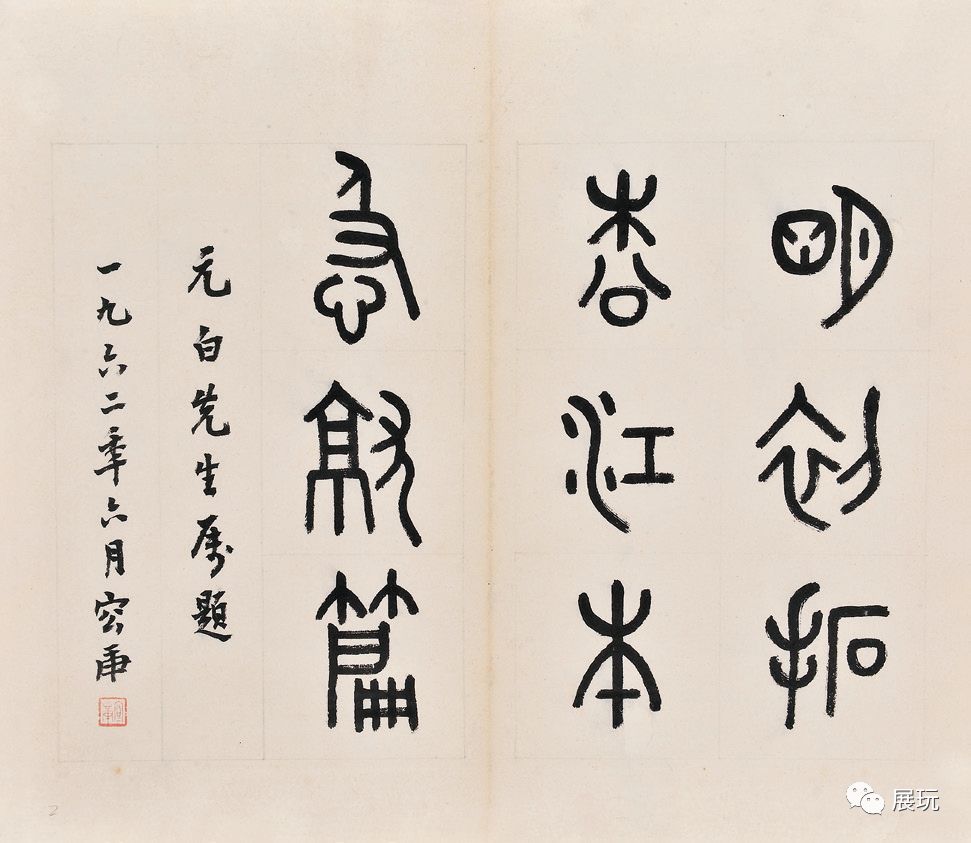 明初拓
松江本
急就篇
元白先生属題
一九六二年六月容庚
容庚
展玩